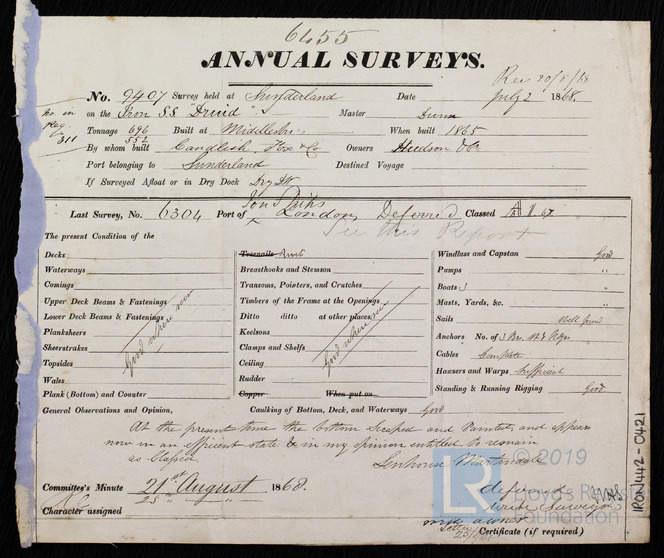 6455
ANNUAL SURVEYS.
Rec 20/8/68
No. 9407 Survey held at Sunderland Date July 2 1868.
on the Iron SS "Druid" Master Dunn
No. in Reg 311
Tonnage 696 552 Built at Middlesbro When built 1865
By whom built Candlish, Fox & Co Owners Hudson & Co
Port belonging to Sunderland Destined Voyage
If Surveyed Afloat or in Dry Dock Dry Dk
Iron Ships
Last Survey, No. 6304 Port of London Deferred Classed A 1 67
See this Report
The present Condition of the
Decks
Waterways
Comings
Upper Deck Beams & Fastenings
Lower Deck Beams & Fastenings
Planksheers
Sheerstrakes
Topsides
Wales
Plank (Bottom) and Counter
Good where seen
Treenails Rivets
Breasthooks and Stemson
Transoms, Pointers, and Crutches
Timbers of the Frame at the Openings
Ditto ditto at other places
Keelsons
Clamps and Shelfs
Ceiling
Rudder
Copper When put on
Good where seen
Windlass and Capstan Good
Pumps "
Boats 3 "
Masts, Yards, &c. "
Sails Well found
Anchors No. of 3 Bor.
Cables Complete
Hawsers and Warps Sufficient
Standing & Running Rigging Good
General Observations and Opinion, Caulking of Bottom, Deck, and Waterways Good
At the present time the bottom Scraped and Painted, and appears
now in an efficient state & in my opinion entitled to remain
as Classed
Senhouse Martindale
Committee's Minute 21st August 1868.
25th " "
Character assigned
deferred
write Surveyor
Certificate (if required)
© 2019
LR
Lloyd's Register
Foundation
IRON442-0421